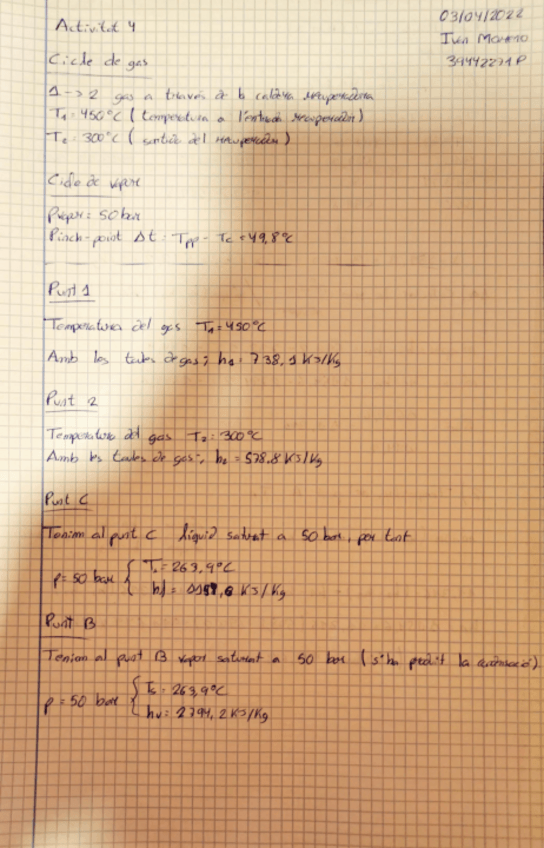 Activitat 4
03/04/2022
Ivan Moreno
39442271P
Cicle de gas
1 -> 2 gas a través de la caldera recuperadora
T1 = 450°C (temperatura a l'entrada recuperador)
T2 = 300°C (sortida del recuperador)
Cicle de vapor
Pvapor = 50 bar
Pinch-point Δt = Tpp - Tc = 49,8°C
Punt 1
Temperatura del gas T1 = 450°C
Amb les taules de gas; h1 = 738,1 KJ/Kg
Punt 2
Temperatura del gas T2 = 300°C
Amb les taules de gas; h2 = 578,8 KJ/Kg
Punt C
Tenim al punt C líquid saturat a 50 bar, per tant
p = 50 bar { Ts = 263,9°C
hl = KJ/Kg
Punt B
Tenim al punt B vapor saturat a 50 bar (s'ha produit la)
p = 50 bar { Ts = 263,9°C
hv = 2794,2 KJ/Kg